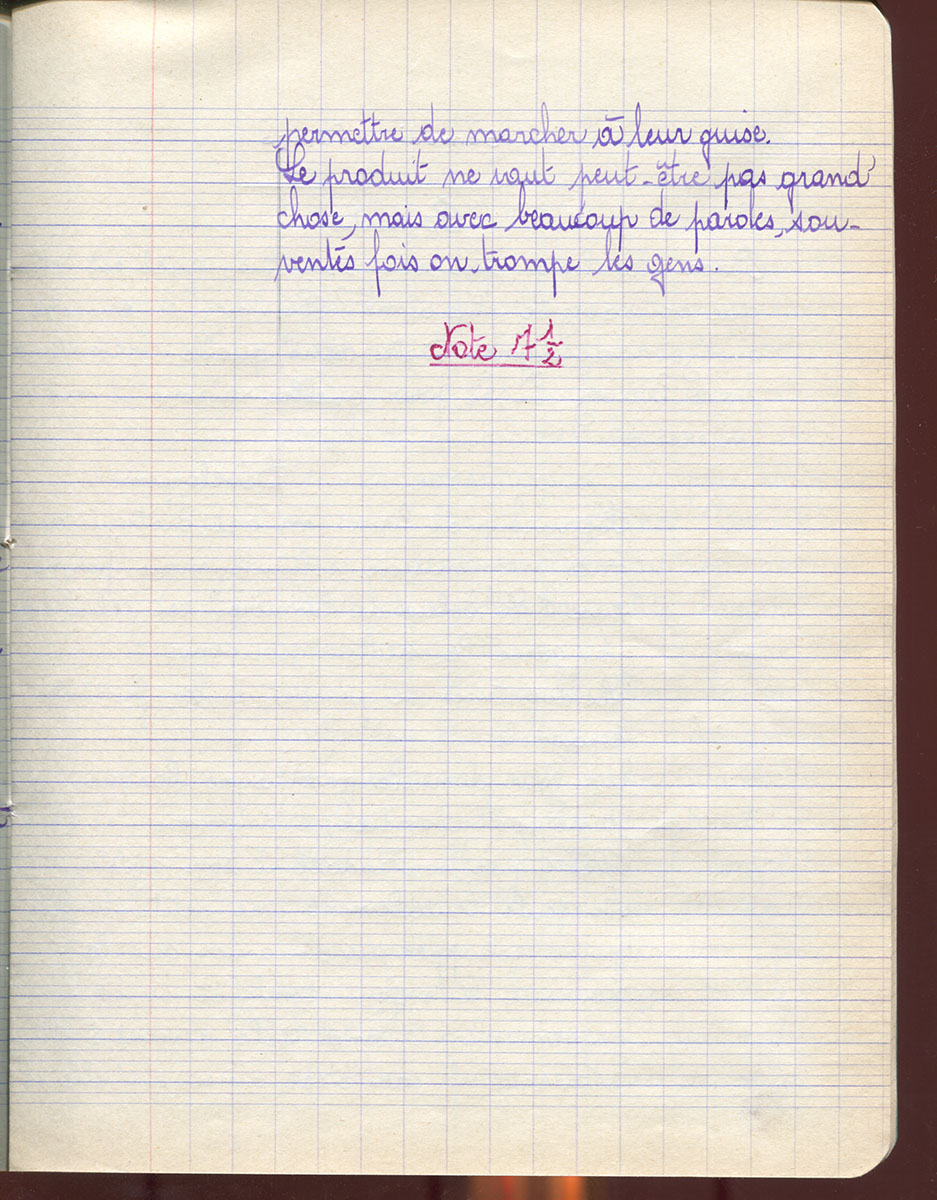 permettre de marcher à leur guise.
Le produit ne vaut peut-être pas grand'
chose, mais avec beaucoup de paroles, sou-
ventes fois on trompe les gens.
Note 7 1/2